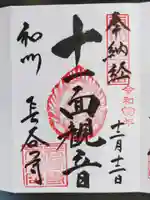 奉納経
令和
十二月十二日
十一面観音
和州
長谷寺